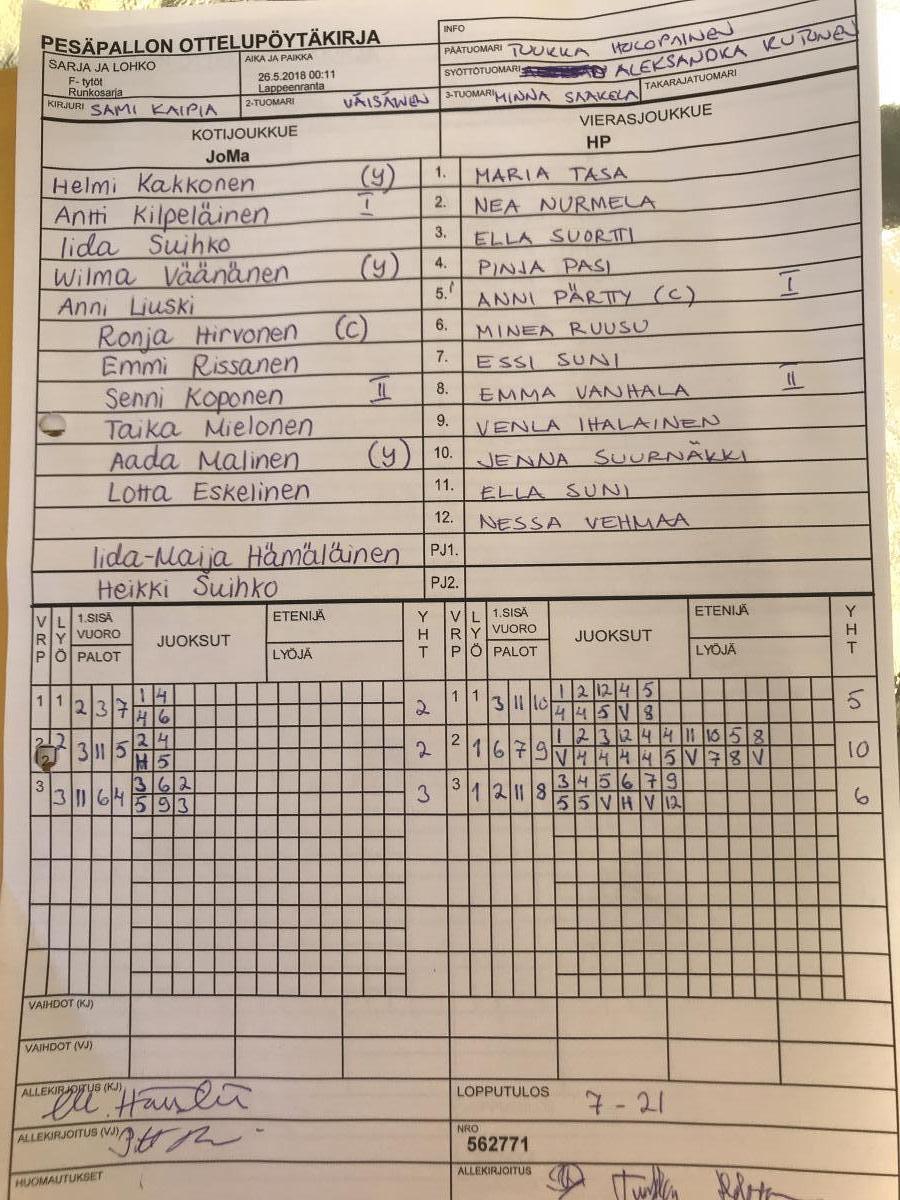 PESÄPALLON OTTELUPÖYTÄKIRJA
INFO
SARJA JA LOHKO
F- tytöt
Runkosarja
AIKA JA PAIKKA
26.5.2018 00:11
Lappeenranta
PÄÄTUOMARI TUUKKA HOLOPAINEN
SYÖTTÖTUOMARI ALEKSANDRA KUTONEN
KIRJURI SAMI KAIPIA
2-TUOMARI VÄISÄINEN
3-TUOMARI MINNA SAAKELA
TAKARAJATUOMARI
KOTIJOUKKUE
JoMa
VIERASJOUKKUE
HP
Helmi Kakkonen (y) 1. MARIA TASA
Antti Kilpeläinen I 2. NEA NURMELA
Iida Suihko 3. ELLA SUORTTI
Wilma Väänänen (y) 4. PINJA PASI
Anni Liuski 5. ANNI PÄRTTY (C) I
Ronja Hirvonen (C) 6. MINEA RUUSU
Emmi Rissanen 7. ESSI SUNI
Senni Koponen II 8. EMMA VANHALA II
Taika Mielonen 9. VENLA IHALAINEN
Aada Malinen (y) 10. JENNA SUURNÄKKI
Lotta Eskelinen 11. ELLA SUNI
12. NESSA VEHMAA
Iida-Maija Hämäläinen PJ1.
Heikki Suihko PJ2.
VRP LYÖ 1.SISÄ VUORO PALOT JUOKSUT ETENIJÄ LYÖJÄ YHT VRP LYÖ 1.SISÄ VUORO PALOT JUOKSUT ETENIJÄ LYÖJÄ YHT
1 1 2 3 7 1 4 2 1 1 3 11 10 1 2 12 4 5 5
4 6 4 4 5 V 8
2 2 3 11 5 2 4 2 2 1 6 7 9 1 2 3 12 4 4 11 10 5 8 10
2 H 5 V 4 4 4 4 5 V 7 8 V
3 3 11 6 4 3 6 2 3 3 1 2 11 8 3 4 5 6 7 9 6
5 9 3 5 5 V H V 12
VAIHDOT (KJ)
VAIHDOT (VJ)
ALLEKIRJOITUS (KJ)
LOPPUTULOS 7 - 21
ALLEKIRJOITUS (VJ)
NRO
562771
HUOMAUTUKSET
ALLEKIRJOITUS